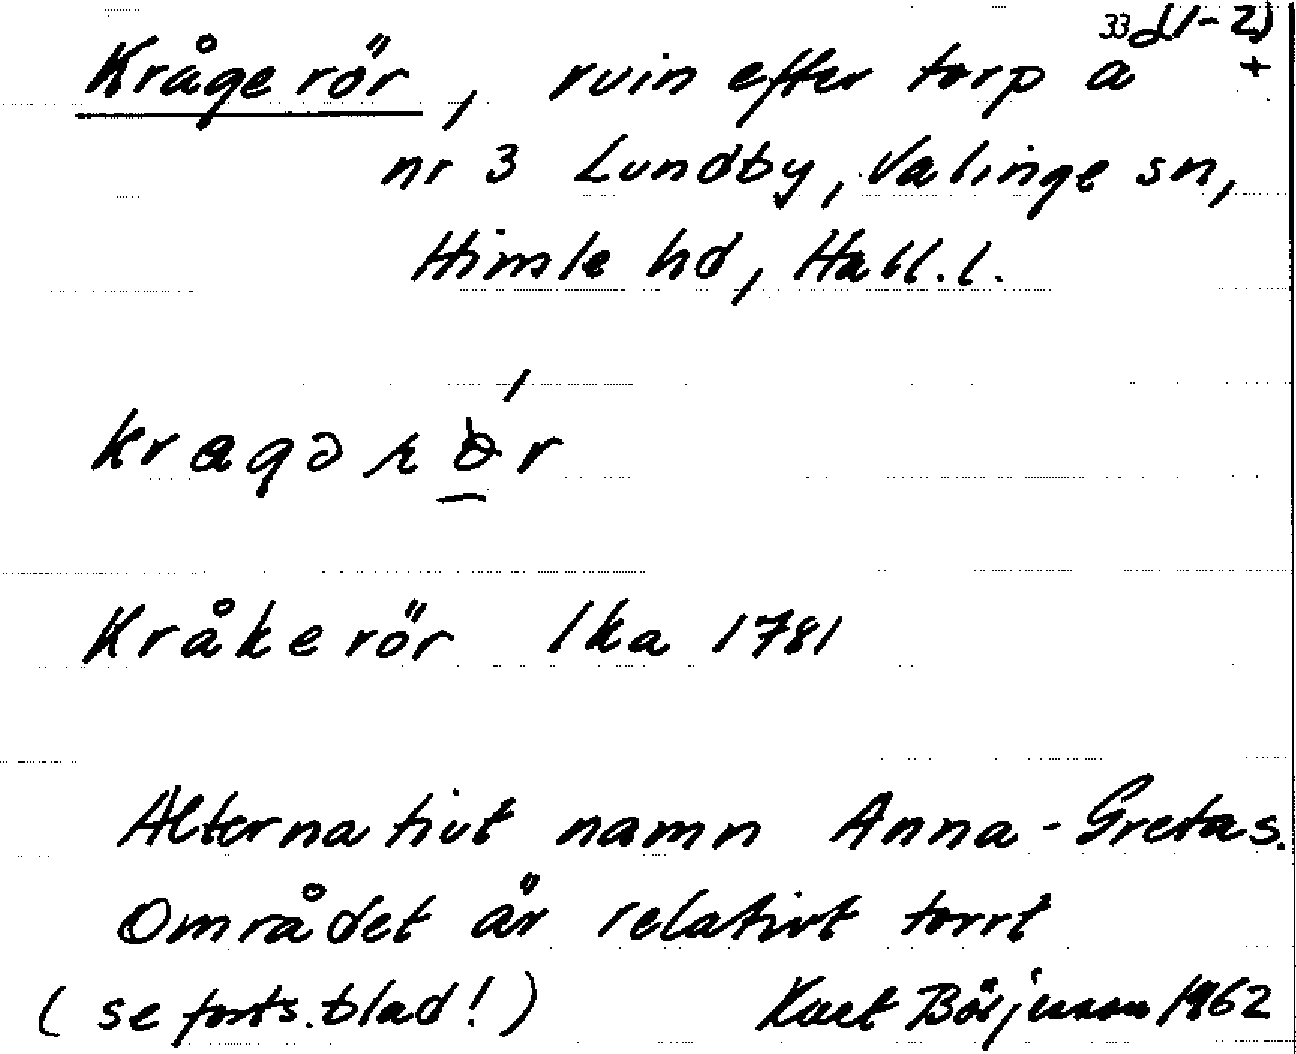 33 d(1-2)
Krågerör, ruin efter torp å +
nr 3 Lundby, Valinge sn,
Himle hd, Hall.l.
Kråkerör lka 1781
Alternativt namn Anna-Gretas.
Området är relativt torrt
(se forts.blad!) Kurt Börjesson 1962